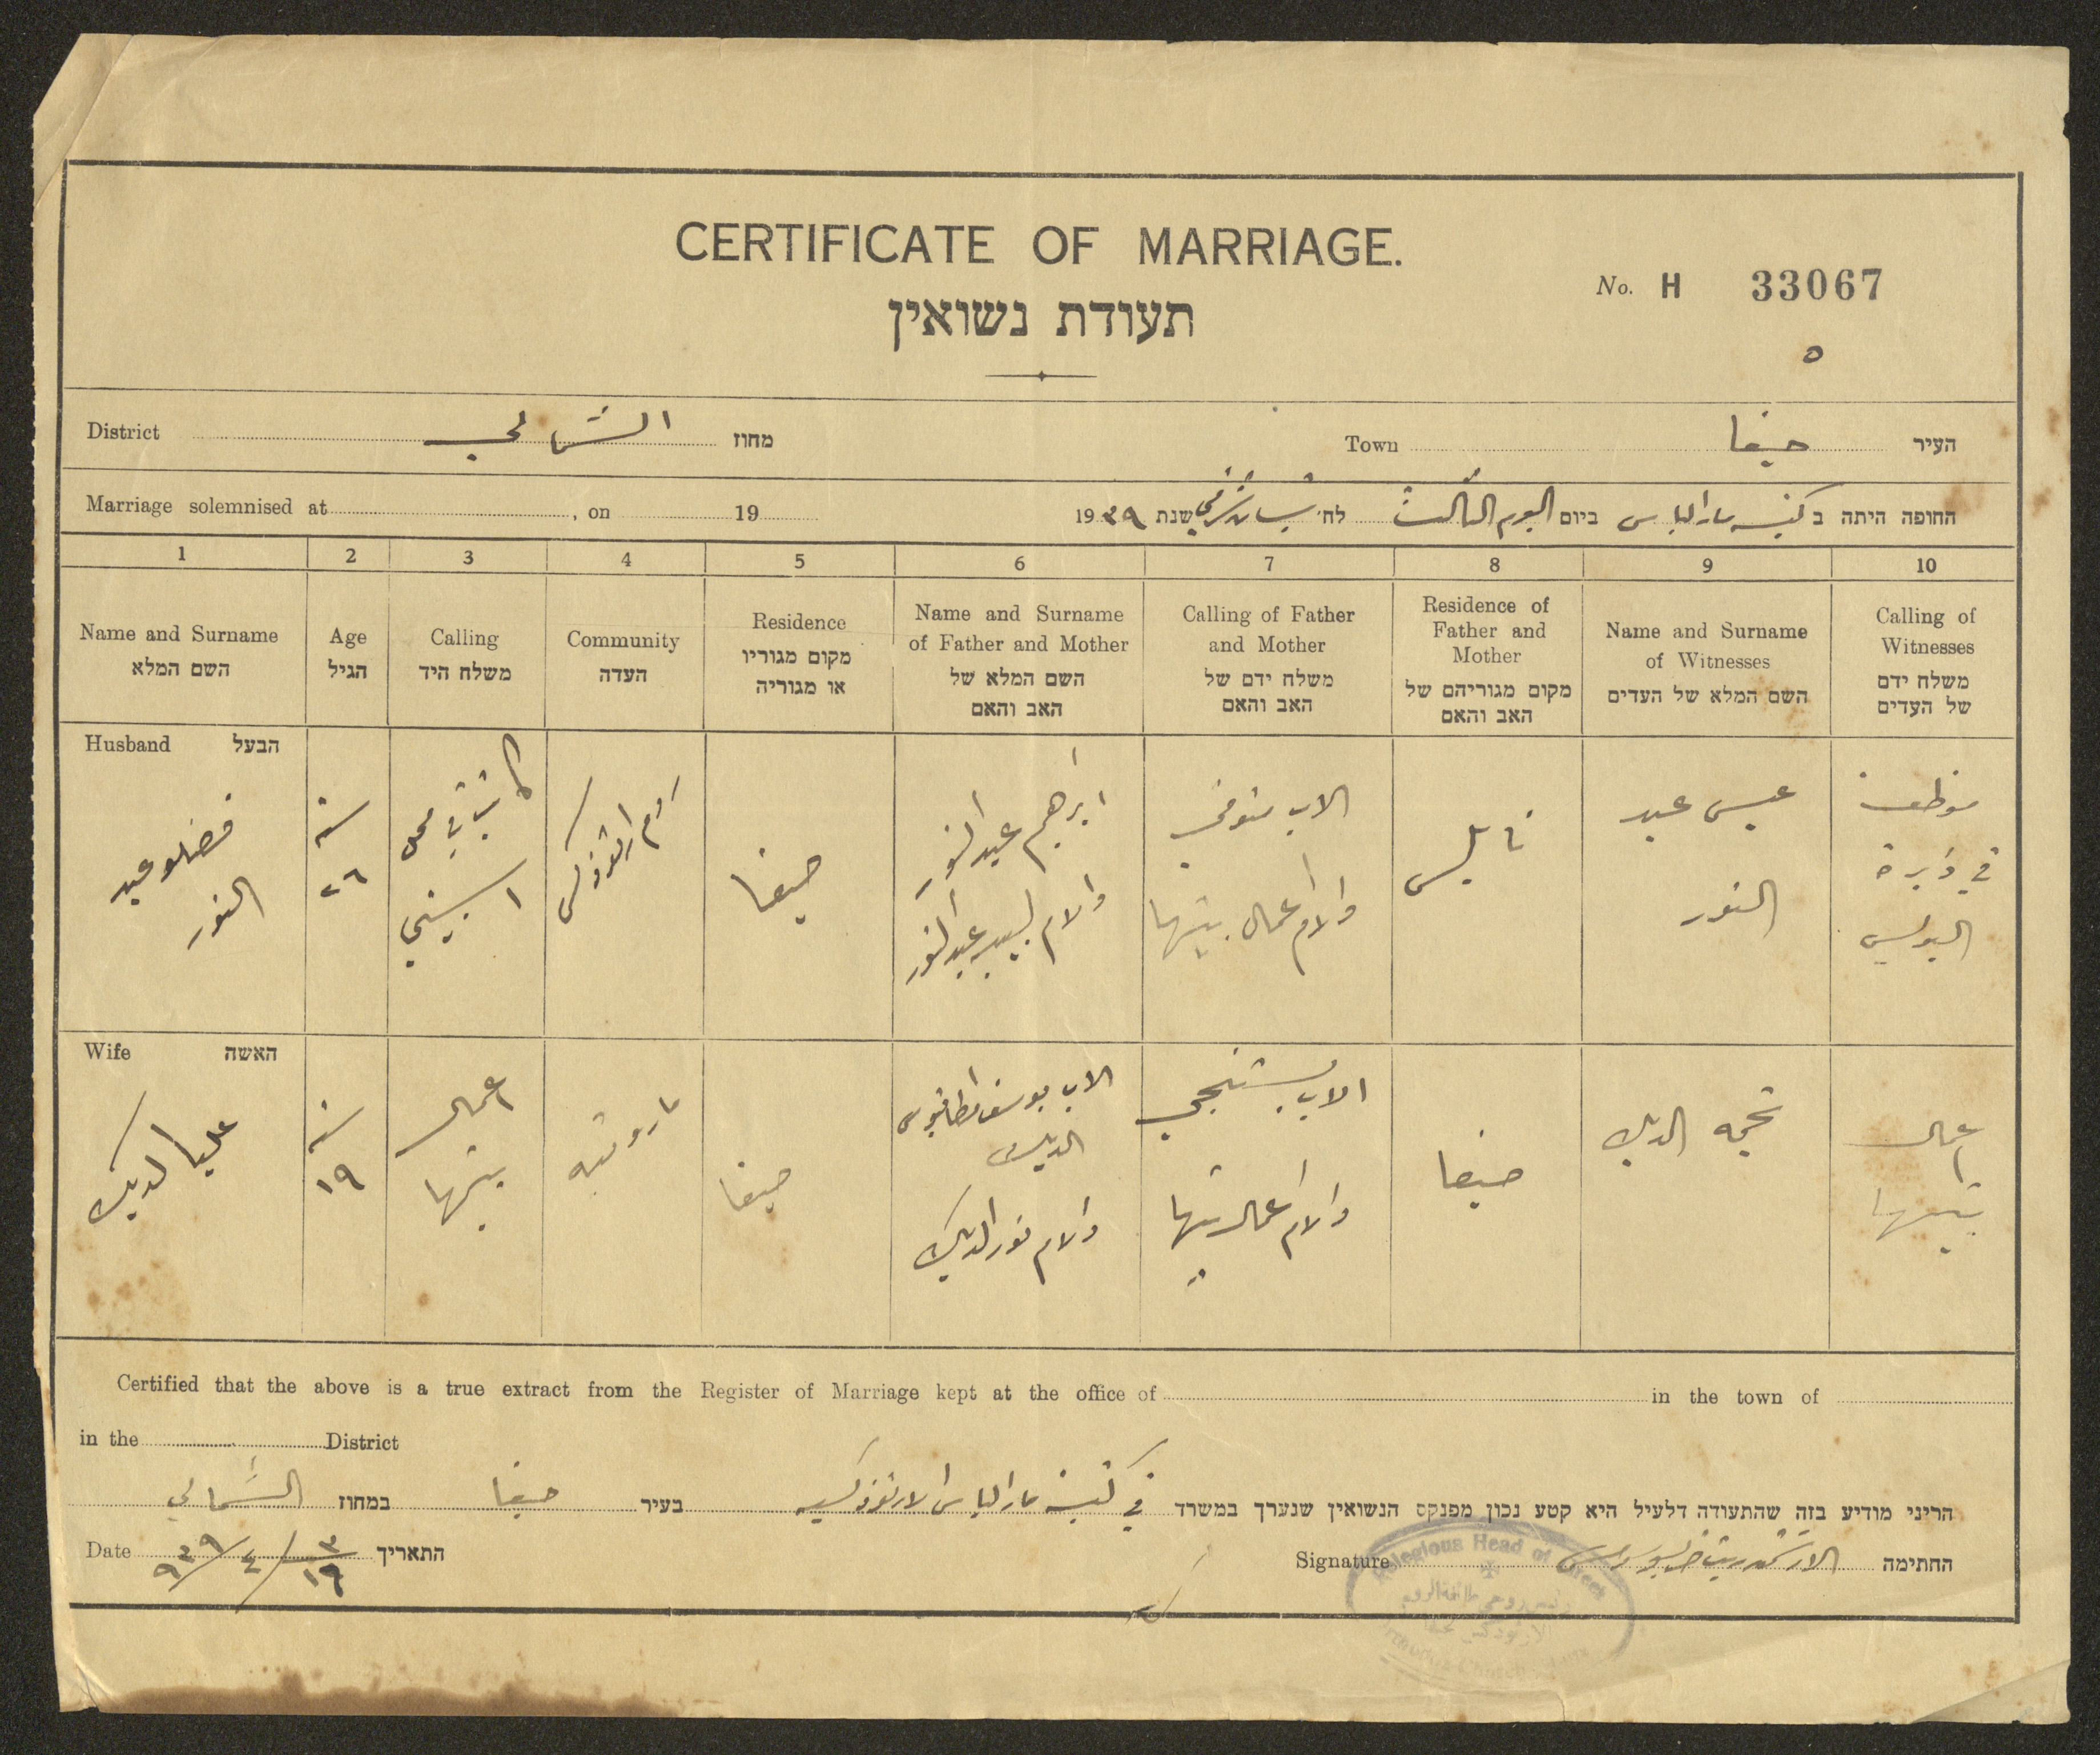 CERTIFICATE OF MARRIAGE.
תעודת נשואין
No. H 33067
٥
District الشمالي מחוז
Town حيفا העיר
Marriage solemnised at , on 19
החופה היתה ב كنيسة مار الياس ביום اليوم الثالث לח' نيسان شرقي שנת 19٣٩
1 2 3 4 5 6 7 8 9 10
Name and Surname
השם המלא
Age
הגיל
Calling
משלח היד
Community
העדה
Residence
מקום מגוריו
או מגוריה
Name and Surname
of Father and Mother
השם המלא של
האב והאם
Calling of Father
and Mother
משלח ידם של
האב והאם
Residence of
Father and
Mother
מקום מגוריהם של
האב והאם
Name and Surname
of Witnesses
השם המלא של העדים
Calling of
Witnesses
משלח ידם
של העדים
Husband הבעל
فضلو عبد
النور
سنة
٢٦
كاتب في محل
روم ارثوذكس
حيفا
ابراهيم عبد النور
والام عبد النور
الاب متوفي
والام اعمال بيتها
نابلس
عيسى عبد
النور
موظف
في دايرة
البوليس
Wife האשה
عليا الديك
سنة
١٩
اعمال
بيتها
مارونيه
حيفا
الاب يوسف
الديك
والام نور الديك
الاب
والام اعمال بيتها
حيفا
نجمه الديك
اعمال
بيتها
Certified that the above is a true extract from the Register of Marriage kept at the office of in the town of
in the District
הריני מודיע בזה שהתעודה דלעיל היא קטע נכון מפנקס הנשואין שנערך במשרד في كنيسة مار الياس الارثوذكسيه בעיר حيفا במחוז الشمالي
Date ٣/١٦ / ٤ / ٩٣٩ התאריך
Signature החתימה
Religious Head of Greek
رئيس روحي طائفة الروم
Orthodox Church